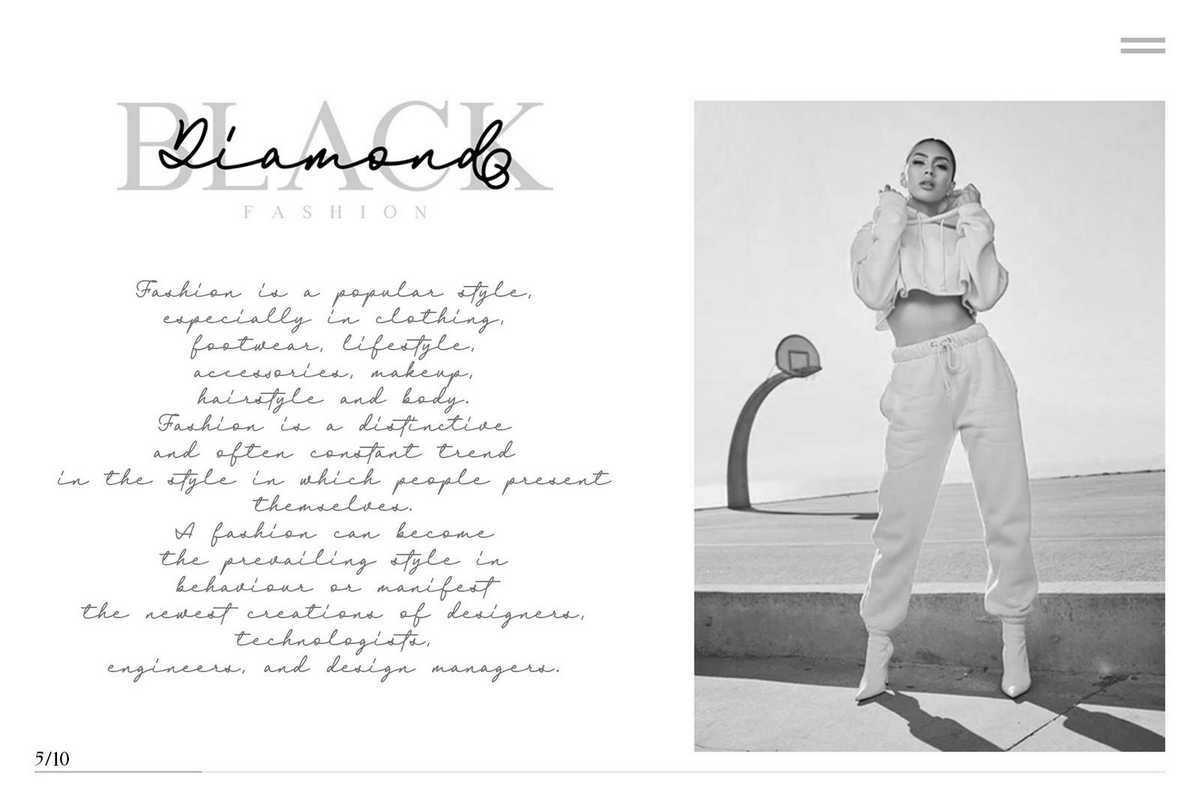 BLACK
Diamond
FASHION
Fashion is a popular style,
especially in clothing,
footwear, lifestyle,
accessories, makeup,
hairstyle and body.
Fashion is a distinctive
and often constant trend
in the style in which people present
themselves.
A fashion can become
the prevailing style in
behaviour or manifest
the newest creations of designers,
technologists,
engineers, and design managers.
5/10